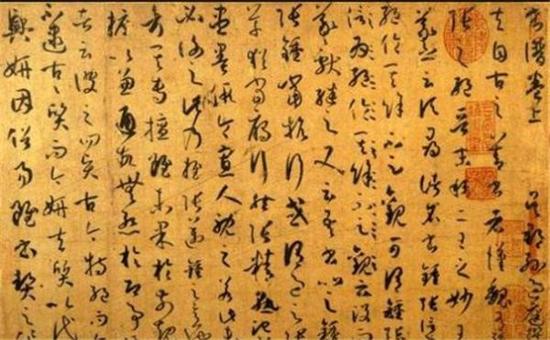 書譜卷上 吳郡孫過庭
夫自古之善書者漢魏有鍾
張之絕晉末稱二王之妙王
羲之云頃尋諸名書鍾張信
為絕倫其餘不足觀可謂鍾張
云沒而
羲獻繼之又云吾書比之
鍾張鍾當抗行或謂過之張
草猶當雁行然張精熟池水
盡墨假令寡人耽之若此
必謝之此乃推張邁鍾之意
考其專擅雖未果於前規
摭以兼通故無慚於即事
者云彼之四賢古今特絕而今
不逮古古質而今妍夫質以代
興妍因俗易雖書契之作